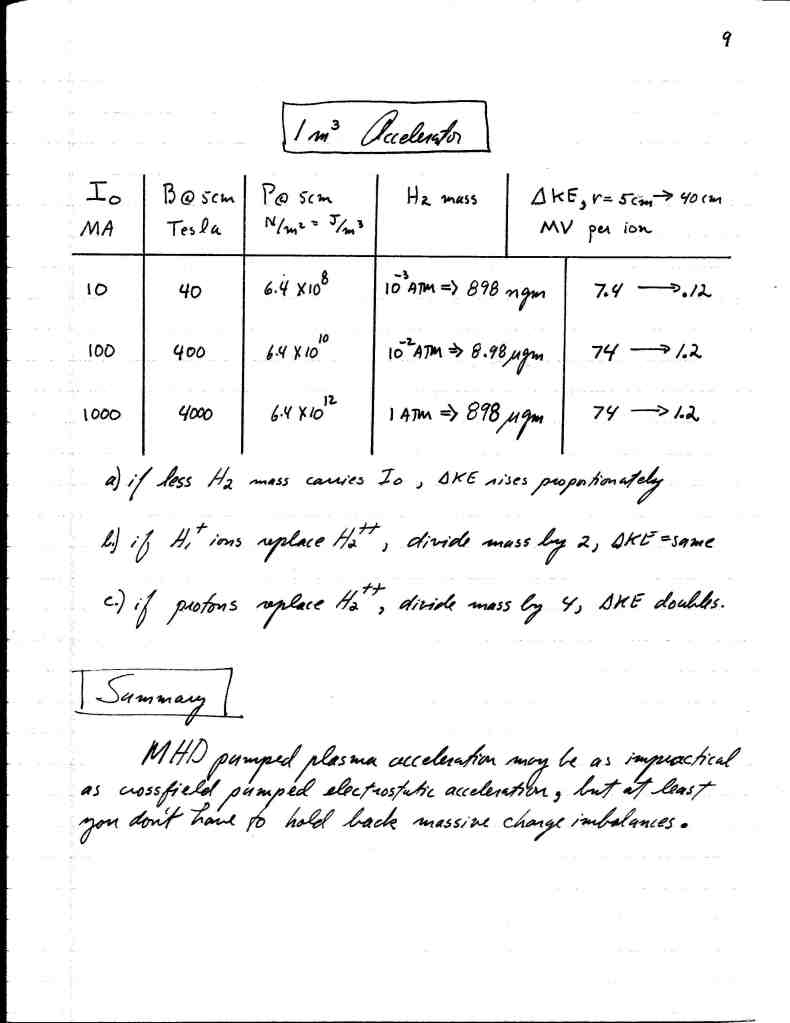 9
1 m³ Accelerator
I₀ MA | B @ 5cm Tesla | P @ 5cm N/m² = J/m³ | H₂ mass | ΔKE, r = 5cm → 40cm MV per ion
10 | 40 | 6.4 X10⁸ | 10⁻³ ATM => 898 ngm | 7.4 → .12
100 | 400 | 6.4 X10¹⁰ | 10⁻² ATM => 8.98 µgm | 74 → 1.2
1000 | 4000 | 6.4 X10¹² | 1 ATM => 898 µgm | 74 → 1.2
a) if less H₂ mass carries I₀, ΔKE rises proportionately
b.) if H₁⁺ ions replace H₂⁺⁺, divide mass by 2, ΔKE = same
c.) if protons replace H₂⁺⁺, divide mass by 4, ΔKE doubles.
Summary
MHD pumped plasma acceleration may be as impractical
as crossfield pumped electrostatic acceleration, but at least
you don't have to hold back massive charge imbalances.